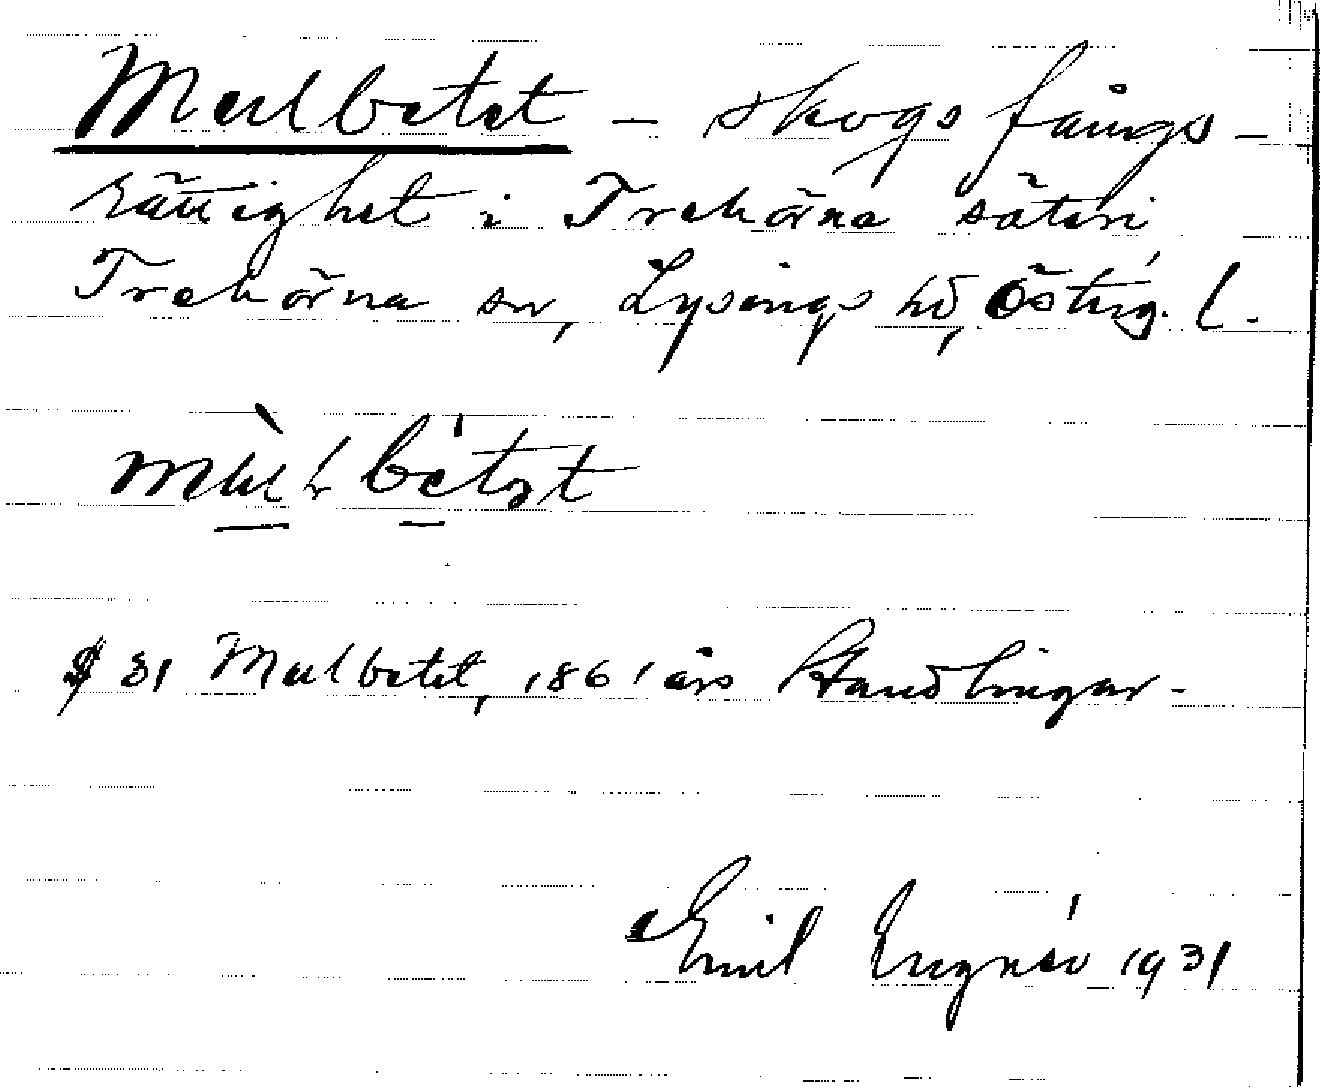 Mulbetet - skogsfångs-
rättighet i Trehörna säteri
Trehörna sn, Lysings hd, Östirg. l.
§ 31 Mulbetet, 1861 års Handlingar.
Emil 1931